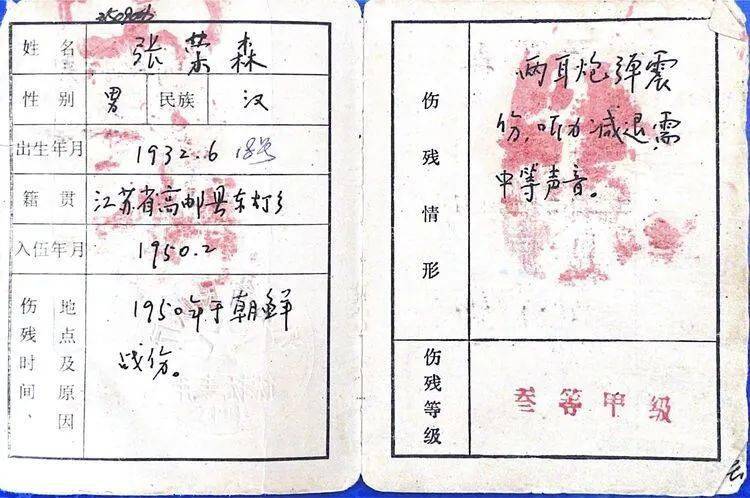 姓名 张荣森
性别 男 民族 汉
出生年月 1932.6
籍贯 江苏省高邮县东灯乡
入伍年月 1950.2
伤残时间、地点及原因
1950年于朝鲜
战伤。
伤残情形
两耳炮弹震
伤,听力减退需
中等声音。
伤残等级
叁等甲级